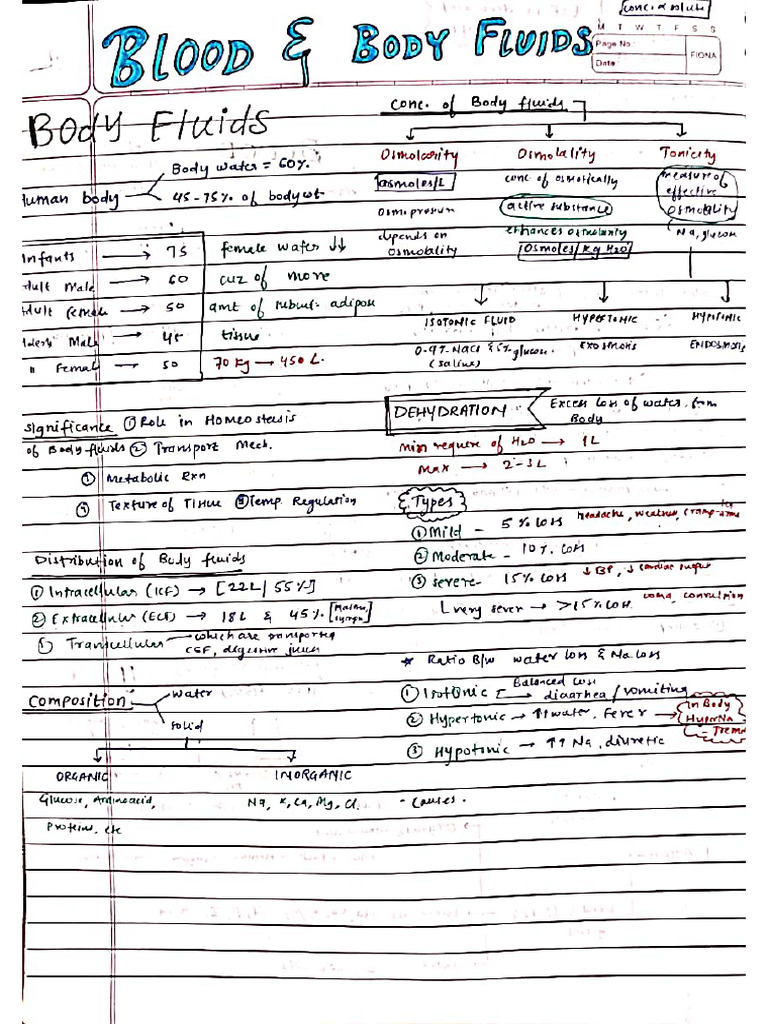 conc. α solute
BLOOD & BODY FLUIDS
M T W T F S S
Page No:
Date:
FIONA
Body Fluids
Human body
Body water = 60%
45-75% of body wt
Infants → 75
Adult Male → 60
Adult Female → 50
Elders Male → 45
" Female → 50
female water ↓↓
cuz of more
amt of subcut. adipou
tissue
70 kg → 450 L.
Significance ① Role in Homeostesis
of Body fluids ② Transport Mech.
③ Metabolic Rxn
④ Texture of Tissue ⑤ Temp. Regulation
Distribution of Body fluids
① Intracellular (ICF) → [22L/ 55%]
② Extracellular (ECF) → 18L & 45%
Transcellular → which are transported
CSF, digestive juices
Composition
water
solid
ORGANIC
INORGANIC
Glucose, Aminoacid,
Na, K, Ca, Mg, Cl.
Proteins, etc
conc. of Body fluids
Osmolarity
Osmolality
Tonicity
osmoles/L
conc of osmotically
measure of
effective
active substance
osmolality
depends on
enhances osmolarity
Na, glucose
osmolality
Osmoles/kg H2O
ISOTONIC FLUID
HYPERTONIC
HYPOTONIC
0.9% NaCl & 5% glucose
(saline)
EXOSMOSIS
ENDOSMOSIS
DEHYDRATION
Excess loss of water from
Body
Min require of H2O → 1L
Max → 2-3L
Types
① Mild - 5% loss headache, weakness,
② Moderate - 10% loss
③ severe - 15% loss ↓ BP, ↓ cardiac
very sever → >15% loss. coma, convulsion
★ Ratio B/w water loss & Na loss
① Isotonic Balanced loss
diaarhea / vomiting
② Hypertonic → ↑↑ water, Fever →
In Body
HyperNa
③ Hypotonic → ↑↑ Na, diuretic
- causes.